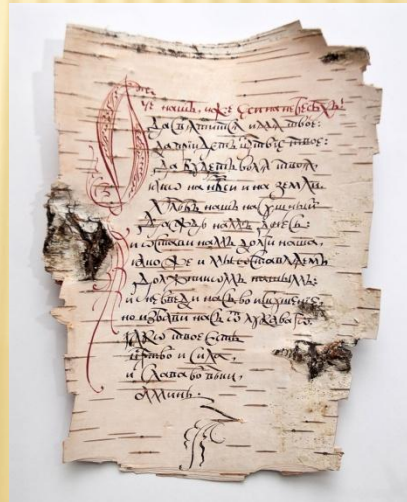 Отче нашъ, иже еси на небесѣхъ!
Да святится имя твое:
да прїидетъ царствіе твое:
да будетъ воля твоя,
яко на небеси и на земли.
Хлѣбъ нашъ насущный
даждь намъ днесь:
и остави намъ долги наша,
якоже и мы оставляемъ
должникомъ нашымъ:
и не введи насъ во искушеніе,
но избави насъ
яко твое есть
царство и сила,
и слава во вѣки,
аминь.